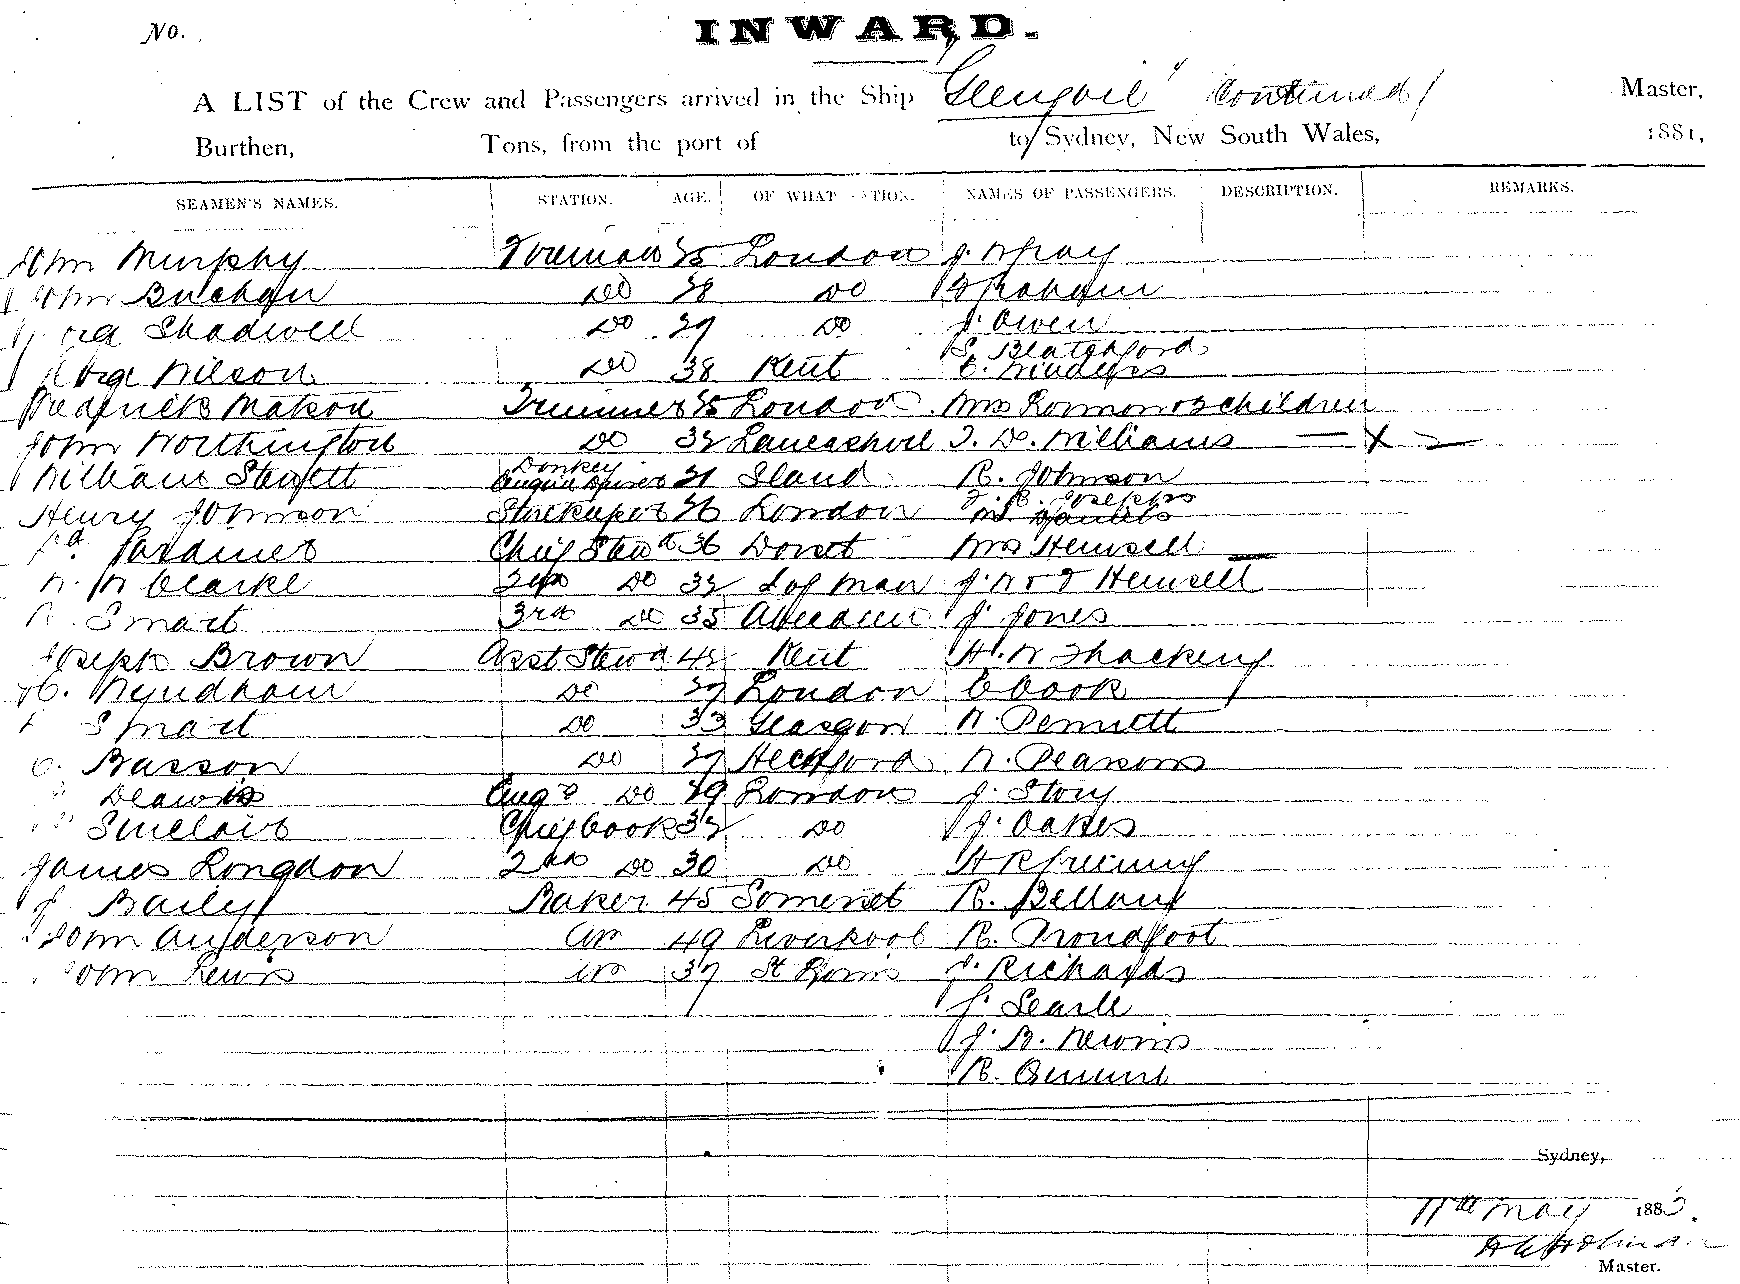 No.
INWARD.
A LIST of the Crew and Passengers arrived in the Ship "Glengoil" Continued / Master,
Burthen, Tons, from the port of to Sydney, New South Wales, 1881,
SEAMEN'S NAMES. STATION. AGE. OF WHAT NATION. NAMES OF PASSENGERS. DESCRIPTION. REMARKS.
John Murphy Fireman 25 London J. W Gray
John Buchan Do 28 Do Graham
Shadwell Do 29 Do J. Owen
S. Blatchford
Wilson Do 38 Kent
Frederick Matson Trimmer 25 London Mrs Lormon & 3 children
John Worthington Do 32 Lancashire T. D. Williams — X —
Donkey
William Stewett Engine driver 21 Island R. Johnson
Josephs
Henry Johnson Storekeeper 26 London
Gardiner Chief Stewd 36 Dorset Mrs Hemsell —
W. W Clarke 2nd Do 32 I of Man J. W & T Hemsell
R. Smart 3rd Do 35 Aberdeen J. Jones
Joseph Brown Asst Stewd 42 Kent H. W Thackery
C. Wyndham Do 29 London C Cook
Smart Do 33 Glasgow W. Pennett
C. Basson Do 29 Heckford W. Pearsons
Engrs Do 19 London J. Story
Sinclair Chief Cook 32 Do J. Oakes
James Longdon 2nd Do 30 Do
J Baily Baker 45 Somerset R. Bellamy
John Anderson AB 49 Liverpool R. Proudfoot
John Lewis AB 37 St Louis J. Richards
J. Searll
J. B. Newins
R.
Sydney,
11th May 1883.
Master.